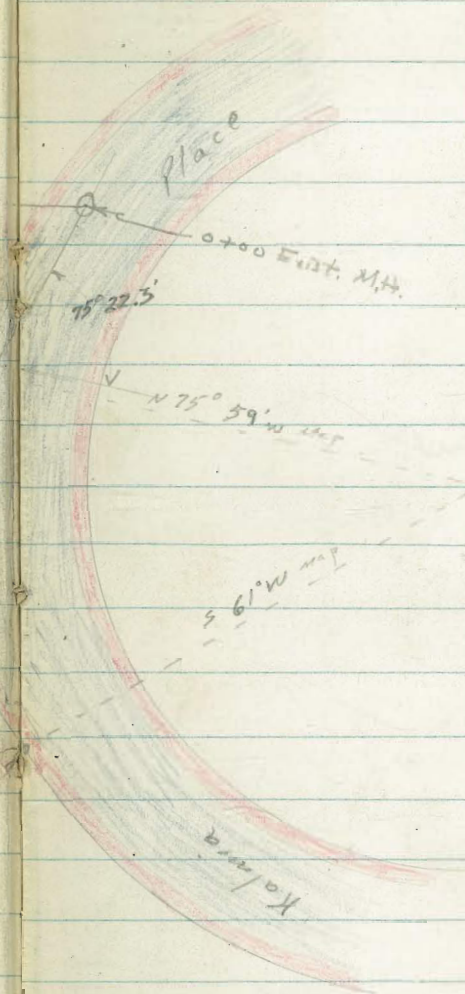 Place
0+00 Exist. M.H.
75° 22.3'
N 75° 59' W mag
S 61° W mag
Kalmia